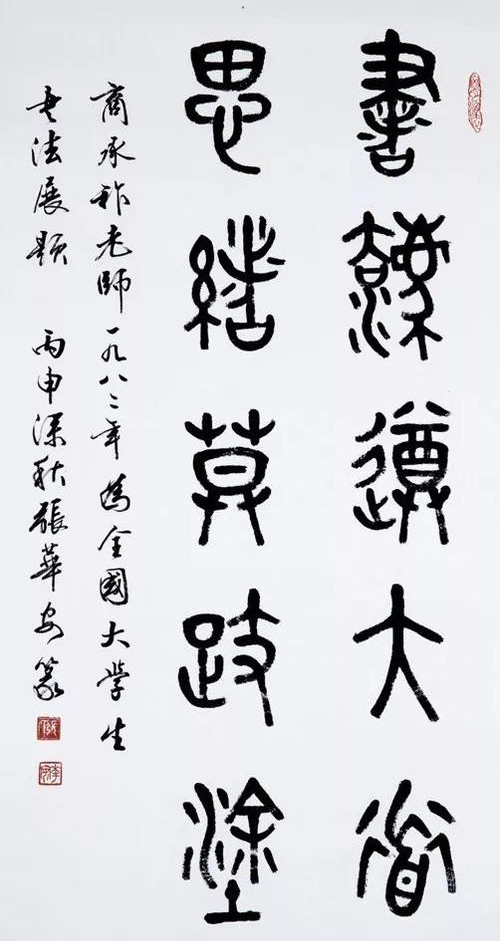 書遵大道
思緒莫跂塗
商承祚老師一九八二年為全國大學生
書法展題 丙申深秋張華安篆